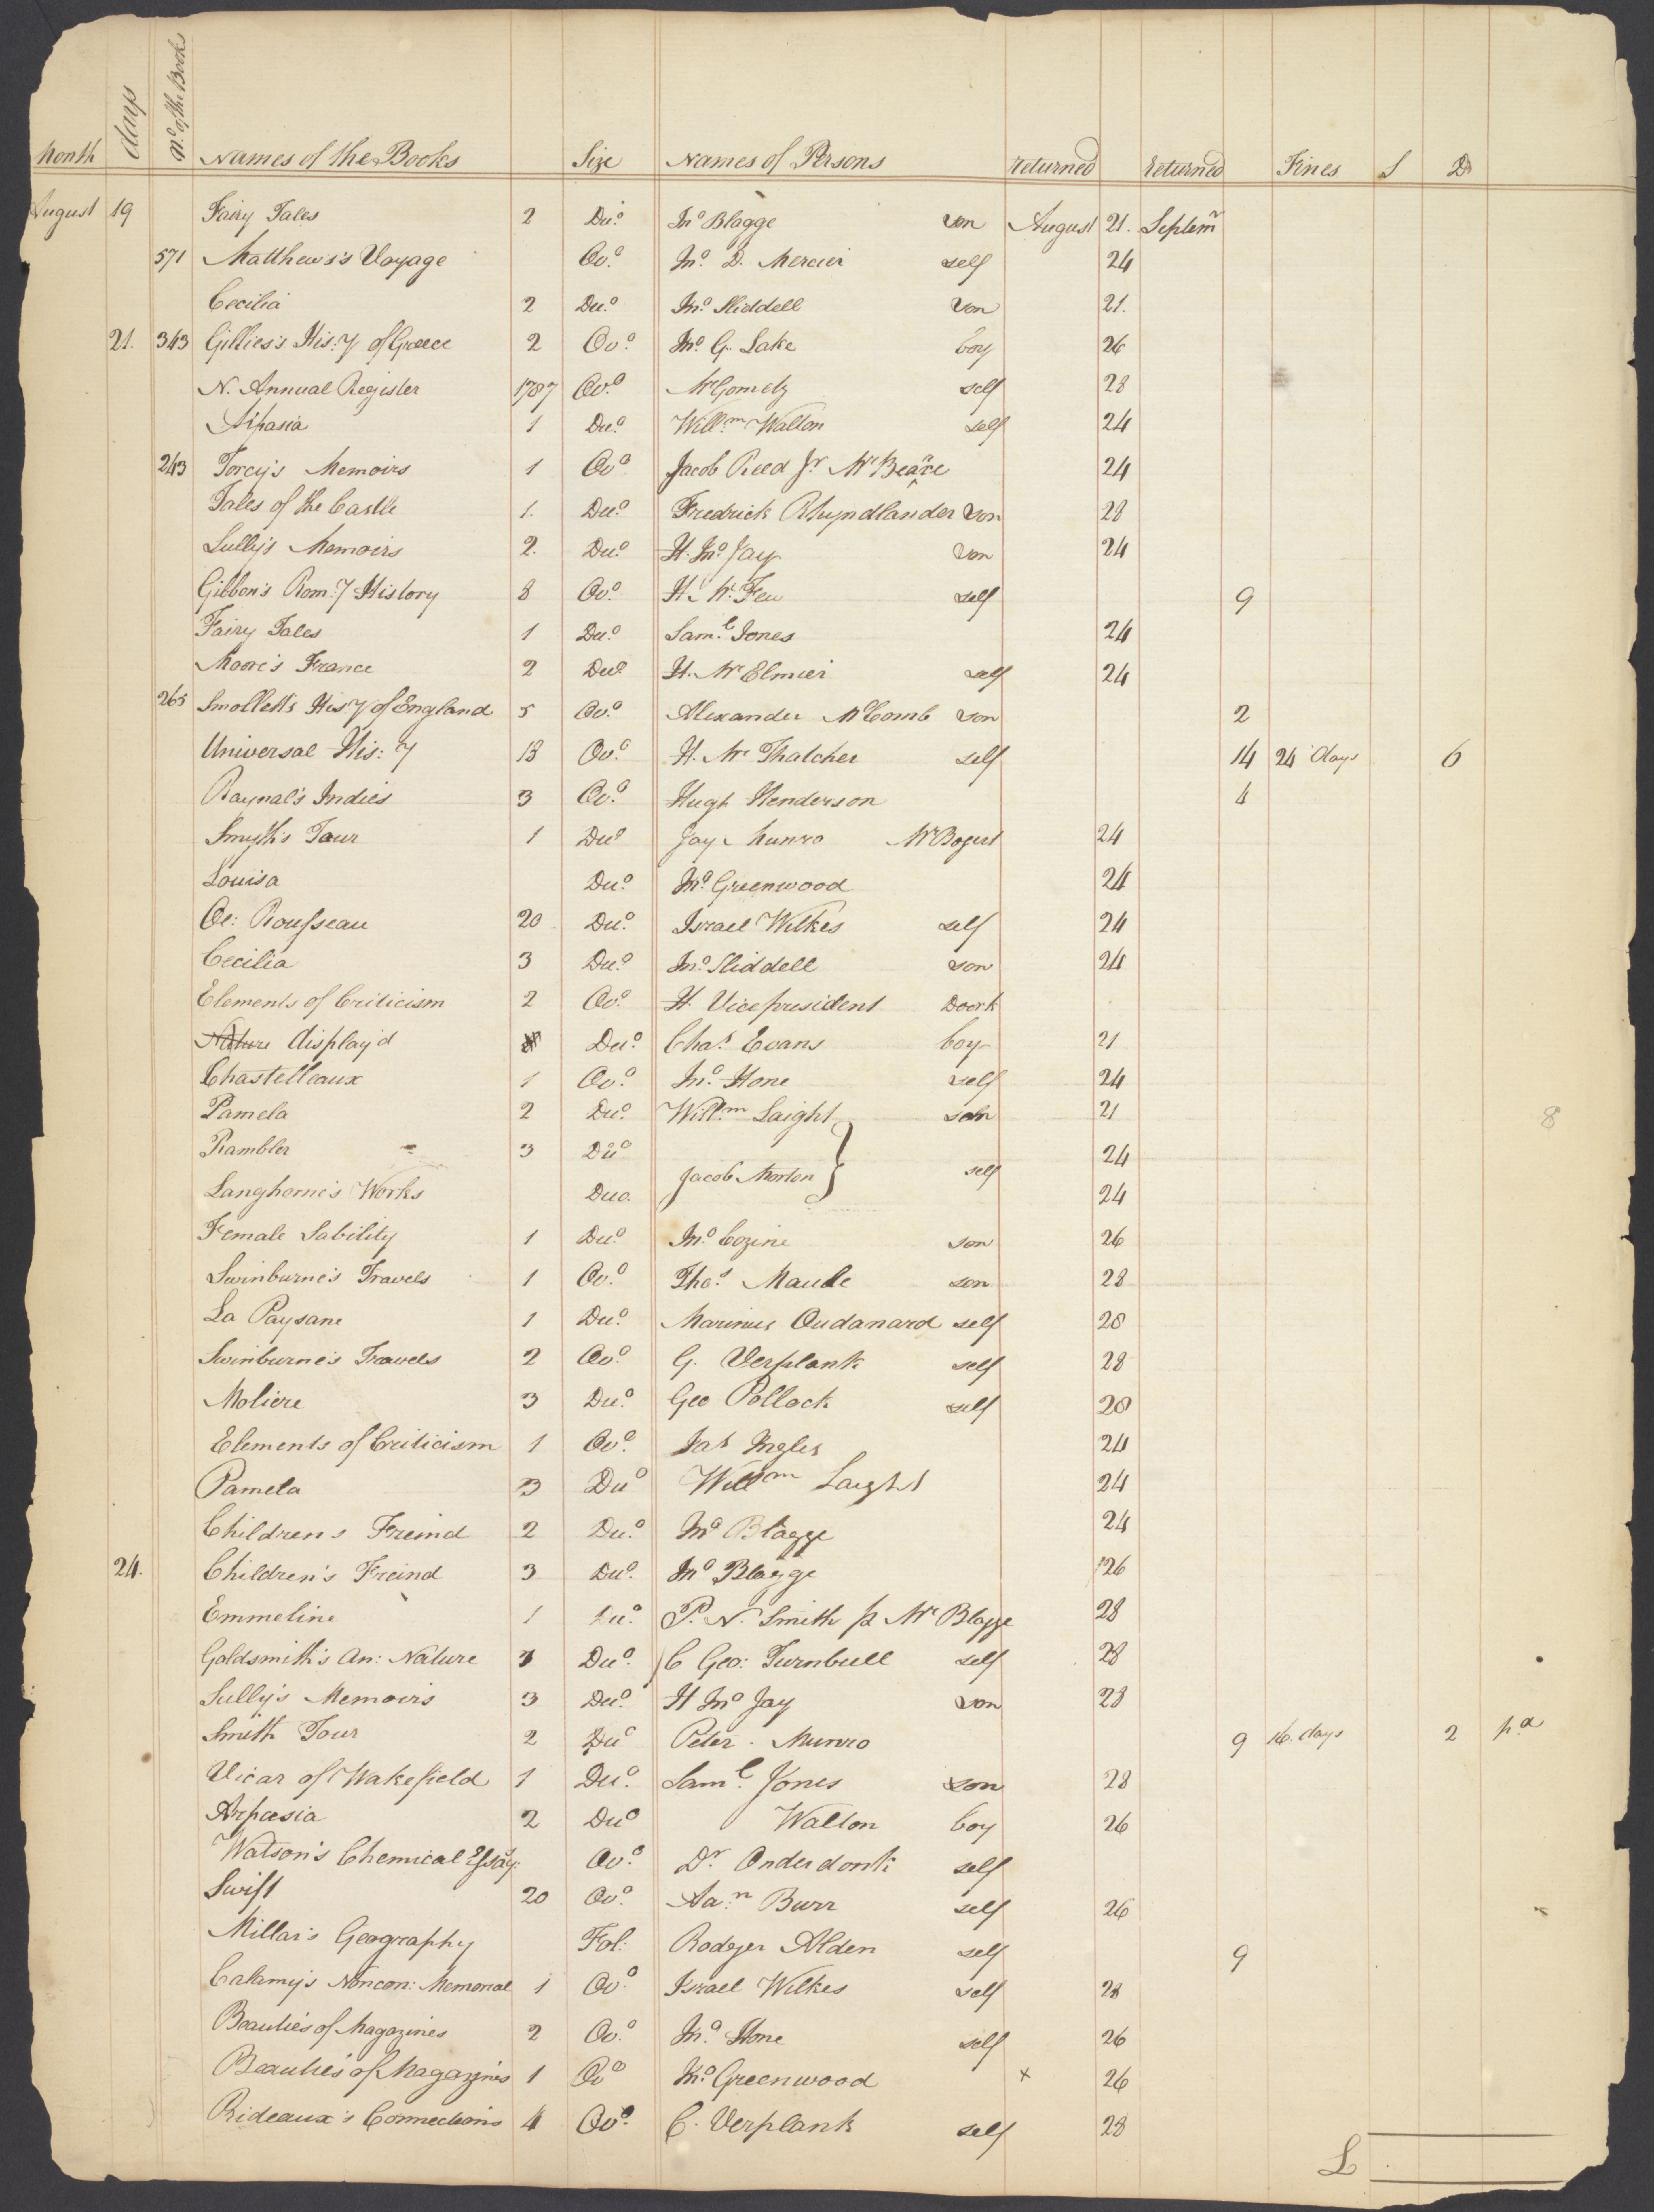 Month days No of the Books Names of the Books Size Names of Persons returned returned Fines S D
August 19 Fairy Tales 2 Duo. Jno Blagge son August 21. Septemr
571 Matthews's Voyage Ovo. Jno. D. Mercier self 24
Cecilia 2 Duo. Jno. Sliddell son 21.
21. 343 Gillies's His:y of Greece 2 Ovo. Jno. G. Lake boy 26
N. Annual Register 1787 Ovo. Mr Gometz self 28
Aspasia 1 Duo. Willm Walton self 24
243 Torcy's Memoirs 1 Ovo. Jacob Reed Jr Mr 24
Tales of the Castle 1. Duo. Fredrick Rhyndlander son 28
Sully's Memoirs 2. Duo. H. Jno. Jay son 24
Gibbon's Rom:y History 8 Ovo. H. Mr. Few self 9
Fairy Tales 1 Duo. Saml. Jones 24
Moore's France 2 Duo. H. Mr Elmier self 24
265 Smollett's His:y of England 5 Ovo. Alexander McComb son 2
Universal His:y 13 Ovo. H. Mr Thatcher self 14 24 days 6
Raynal's Indies 3 Ovo. Hugh Henderson 4
Smyth's Tour 1 Duo. Jay Munro Mr Bogert 24
Louisa Duo. Jno. Greenwood 24
Oe: Rousseau 20 Duo. Israel Wilkes self 24
Cecilia 3 Duo. Jno. Sliddell son 24
Elements of Criticism 2 Ovo. H Vicepresident Doork
Nature display'd Duo. Chas. Evans boy 21
Chastelleaux 1 Ovo. Jno. Hone self 24
Pamela 2 Duo. Willm. Laight son 21
Rambler 3 Duo 24
Jacob Morton } self
Langhorne's Works Duo. 24
Female Sability 1 Duo. Jno. Cozine son 26
Swinburne's Travels 1 Ovo. Thos. Maule son 28
La Paysane 1 Duo. Marinus Oudanard self 28
Swinburne's Travels 2 Ovo. G. Verplank self 28
Moliere 3 Duo. Geo Pollock self 28
Elements of Criticism 1 Ovo. Jas Ingles 24
Pamela 3 Duo Willm Laight 24
Childrens Freind 2 Duo. Jno Blagge 24
24. Children's Freind 3 Duo. Jno Blagge 26
Emmeline 1 Duo. P. N. Smith p Mr Blagge 28
Goldsmith's An: Nature Duo. C Geo: Turnbull self 28
Sully's Memoirs 3 Duo. H Jno Jay son 28
Smith Tour 2 Duo Peter Munro 9 16 days 2 pd
Vicar of Wakefield 1 Duo. Saml. Jones son 28
Arpasia 2 Duo Walton boy 26
Watson's Chemical Essay: Ovo. Dr. Onderdonk self
Swift 20 Ovo. Aa:n Burr self 26
Millar's Geography Fol: Rodger Alden self 9
Calamy's Noncon: Memorial 1 Ovo. Israel Wilkes self 28
Beauties of Magazines 2 Ovo. Jno. Hone self 26
Beauties of Magazines 1 Ovo Jno. Greenwood x 26
Rideaux's Connections 4 Ovo. C. Verplank self 28
8
£